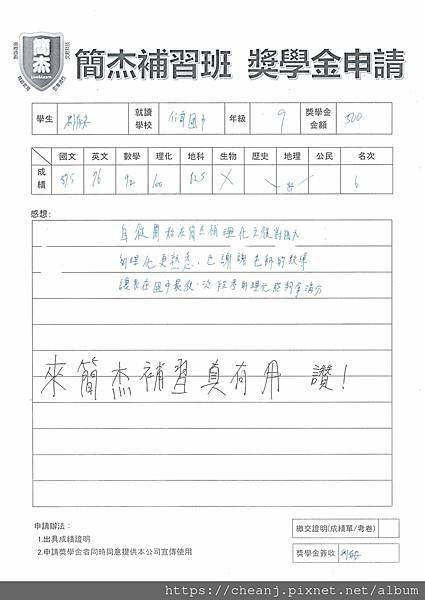 簡杰
Live&Learn
簡杰補習班 獎學金申請
學生 就讀學校 年級 9 獎學金金額 500
國文 英文 數學 理化 地科 生物 歷史 地理 公民 名次
成績 76 92 100 X 6
感想:
自從開始在簡杰補理化之後
對理化更熟悉,也謝謝老師的教導
讓我在國中最後一次段考的理化能夠拿滿分
來簡杰補習真有用 讚!
申請辦法:
1.出具成績證明
2.申請獎學金者同時同意提供本公司宣傳使用
繳交證明(成績單/考卷)
獎學金簽收
https://cheanj.pixnet.net/album